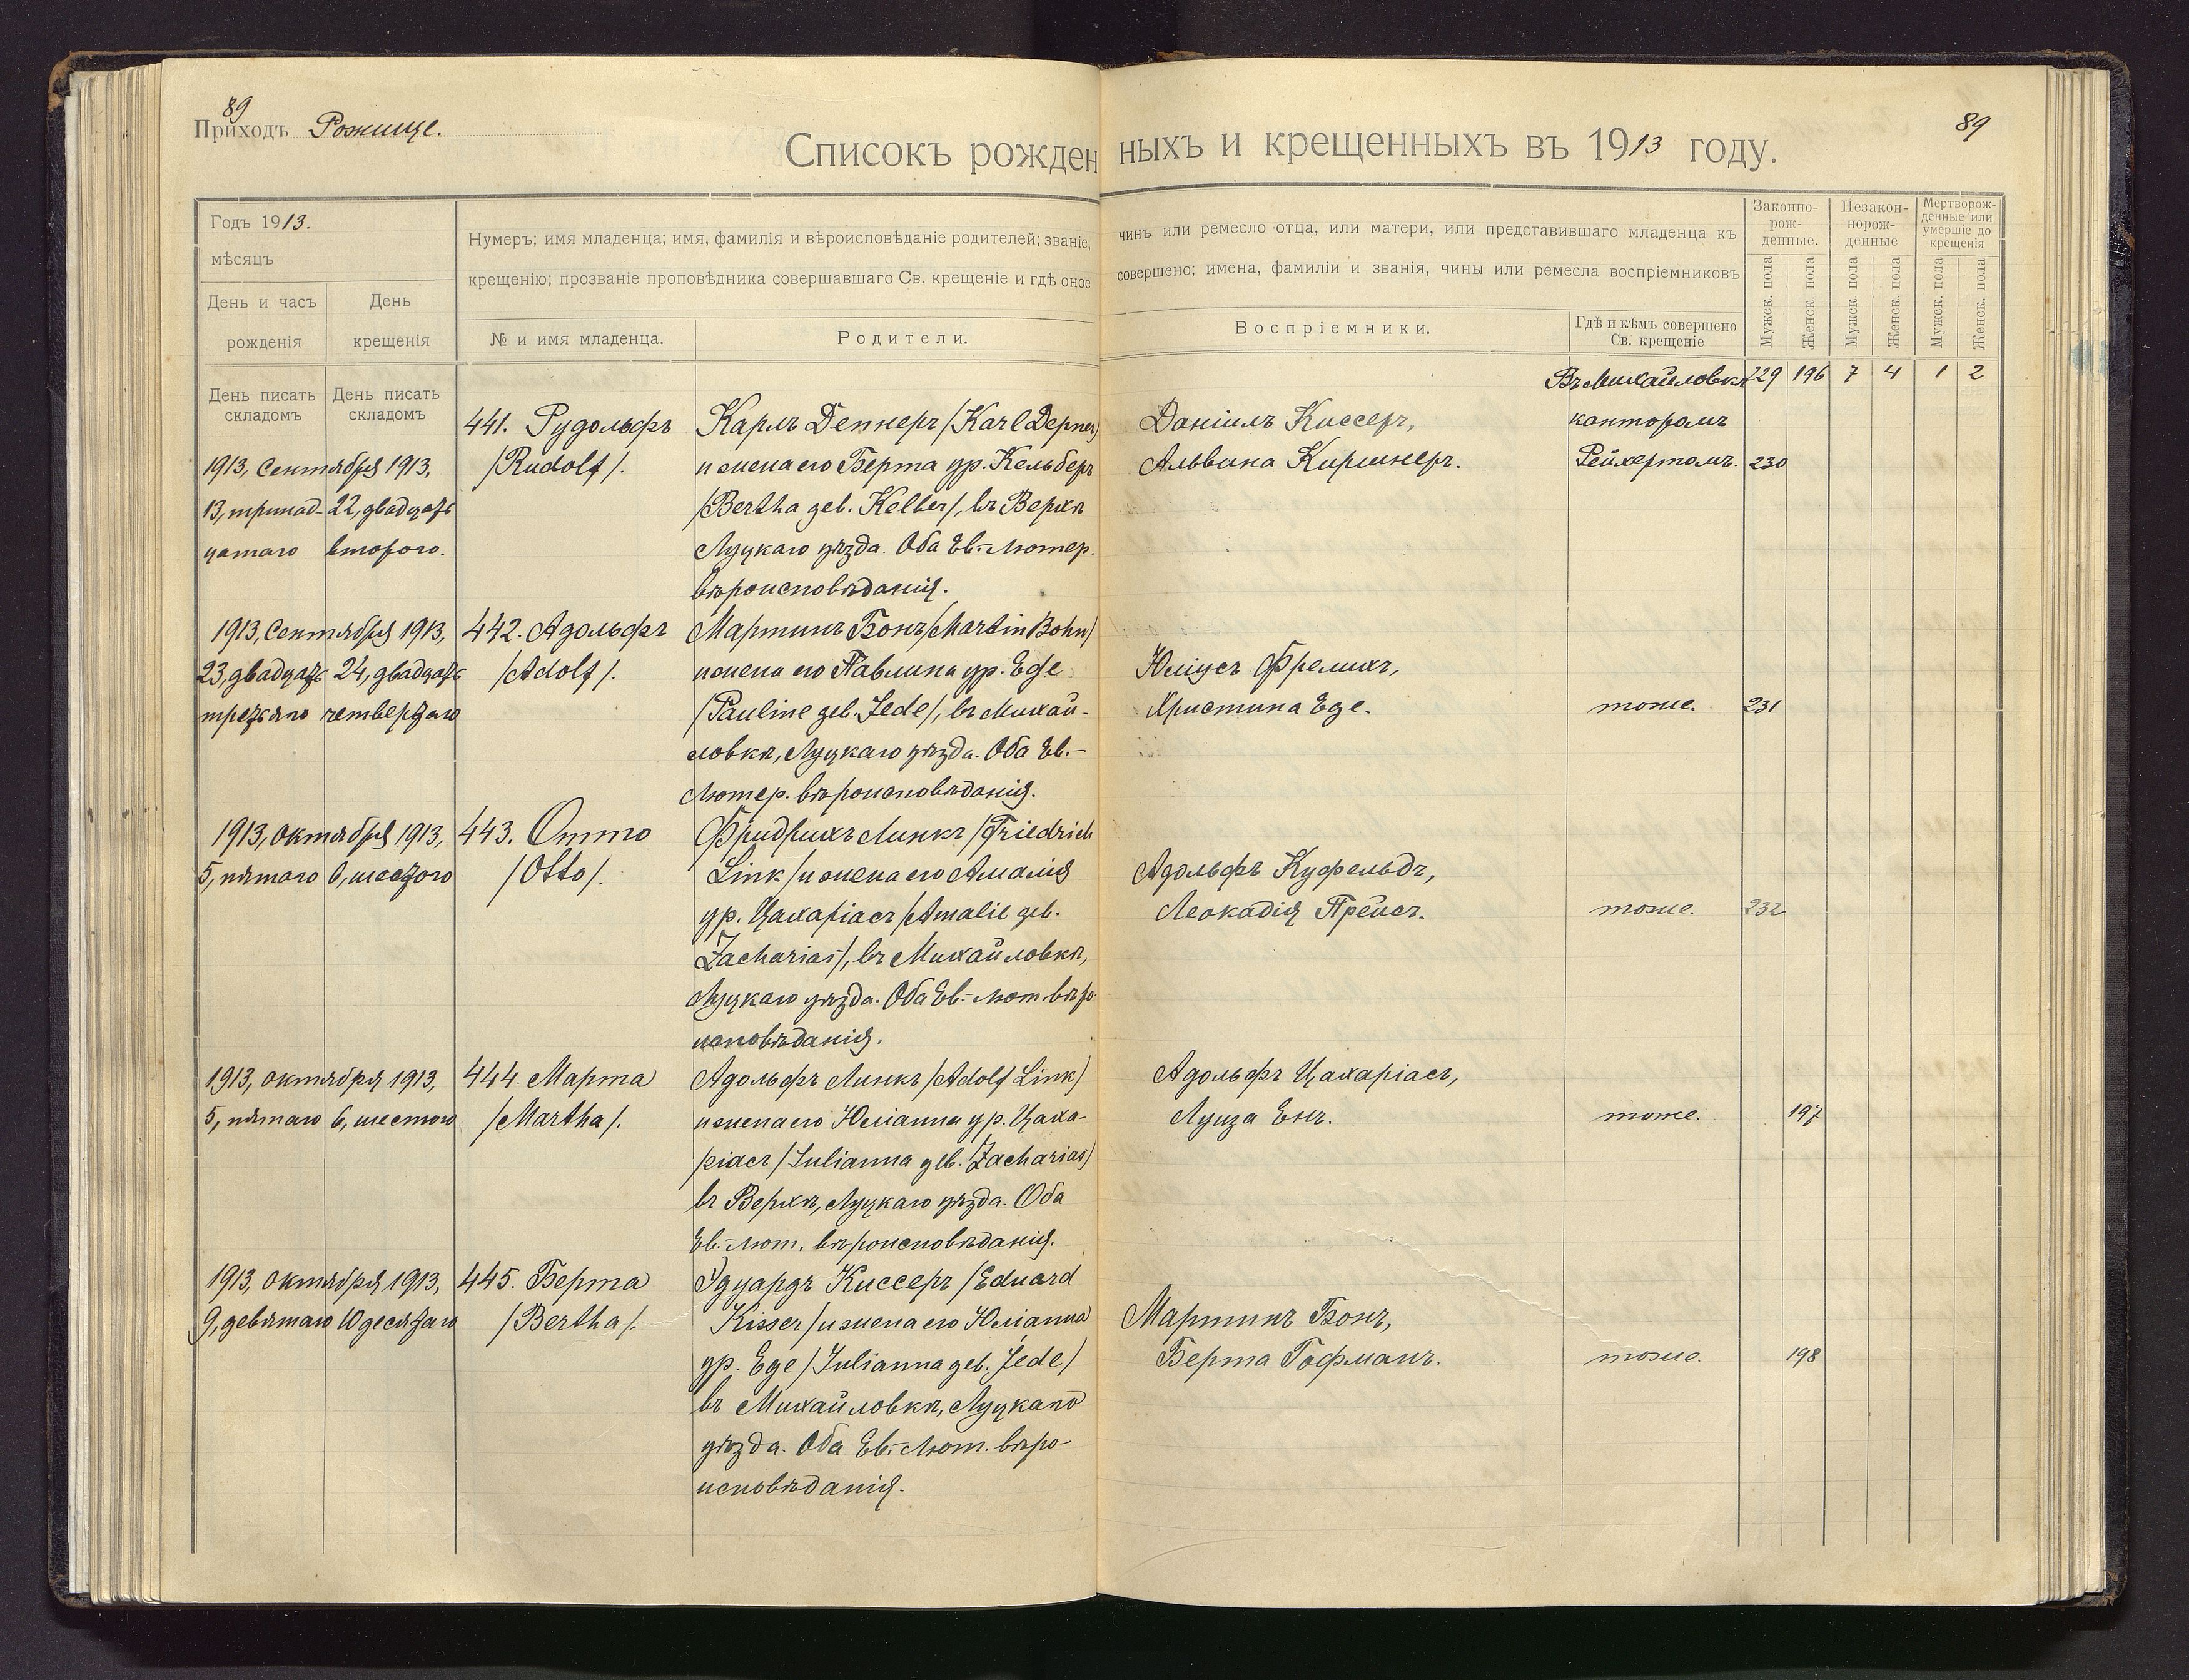 89
Приходъ Рожище.
89
Списокъ рожденныхъ и крещенныхъ въ 1913 году.
Годъ 1913.
мѣсяцъ
День и часъ
рожденія
День
крещенія
Нумеръ; имя младенца; имя, фамилія и вѣроисповѣданіе родителей; званіе, чинъ или ремесло отца, или матери, или представившаго младенца къ
крещенію; прозваніе проповѣдника совершавшаго Св. крещеніе и гдѣ оное совершено; имена, фамиліи и званія, чины или ремесла воспріемниковъ
№ и имя младенца.
Родители.
Воспріемники.
Гдѣ и кѣмъ совершено
Св. крещеніе
Законно-
рож-
денные.
Незакон-
норож-
денные
Мертворож-
денные или
умершіе до
крещенія
Мужск. пола
Женск. пола
Мужск. пола
Женск. пола
Мужск. пола
Женск. пола
День писать
складомъ
День писать
складомъ
229 196 7 4 1 2
1913, Сентября 1913,
13, тринад- 22, двадцать
цатаго второго.
441. Рудольфъ
/Rudolf/.
Карлъ Депнеръ /Karl Depner/
и жена его Берта ур. Кельберъ
/Bertha geb. Kelber/, въ Верхѣ
Луцкаго уѣзда. Оба Ев.-Лютер.
вѣроисповѣданія.
Даніилъ Киссеръ,
Альвина Киршнеръ.
Въ Михайловкѣ
канторомъ
Рейхертомъ.
230
1913, Сентября 1913,
23, двадцать 24, двадцать
третьяго четвертаго
442. Адольфъ
/Adolf/.
Мартинъ Бонъ /Martin Bohn/
и жена его Павлина ур. Еде
/Pauline geb. Jede/, въ Михай-
ловкѣ, Луцкаго уѣзда. Оба Ев.-
Лютер. вѣроисповѣданія.
Юліусъ Фрелихъ,
Христина Еде.
тоже.
231
1913, Октября 1913,
5, пятаго 6, шестого
443. Отто
/Otto/.
Фридрихъ Линкъ /Friedrich
Link/ и жена его Амалія
ур. Цахаріасъ /Amalie geb.
Zacharias/, въ Михайловкѣ,
Луцкаго уѣзда. Оба Ев.-Лют. вѣро-
исповѣданія.
Адольфъ Куфельдъ,
Леокадія Прейсъ.
тоже.
232
1913, Октября 1913,
5, пятаго 6, шестого
444. Марта
/Martha/.
Адольфъ Линкъ /Adolf Link/
и жена его Юліанна ур. Цаха-
ріасъ /Julianna geb. Zacharias/
въ Верхѣ, Луцкаго уѣзда. Оба
Ев.-Лют. вѣроисповѣданія.
Адольфъ Цахаріасъ,
Луиза Енъ.
тоже.
197
1913, Октября 1913,
9, девятаго 10 десятаго
445. Берта
/Bertha/.
Эдуардъ Киссеръ /Eduard
Kisser/ и жена его Юліанна
ур. Еде /Julianna geb. Jede/
въ Михайловкѣ, Луцкаго
уѣзда. Оба Ев.-Лют. вѣро-
исповѣданія.
Мартинъ Бонъ,
Берта Гофманъ.
тоже.
198